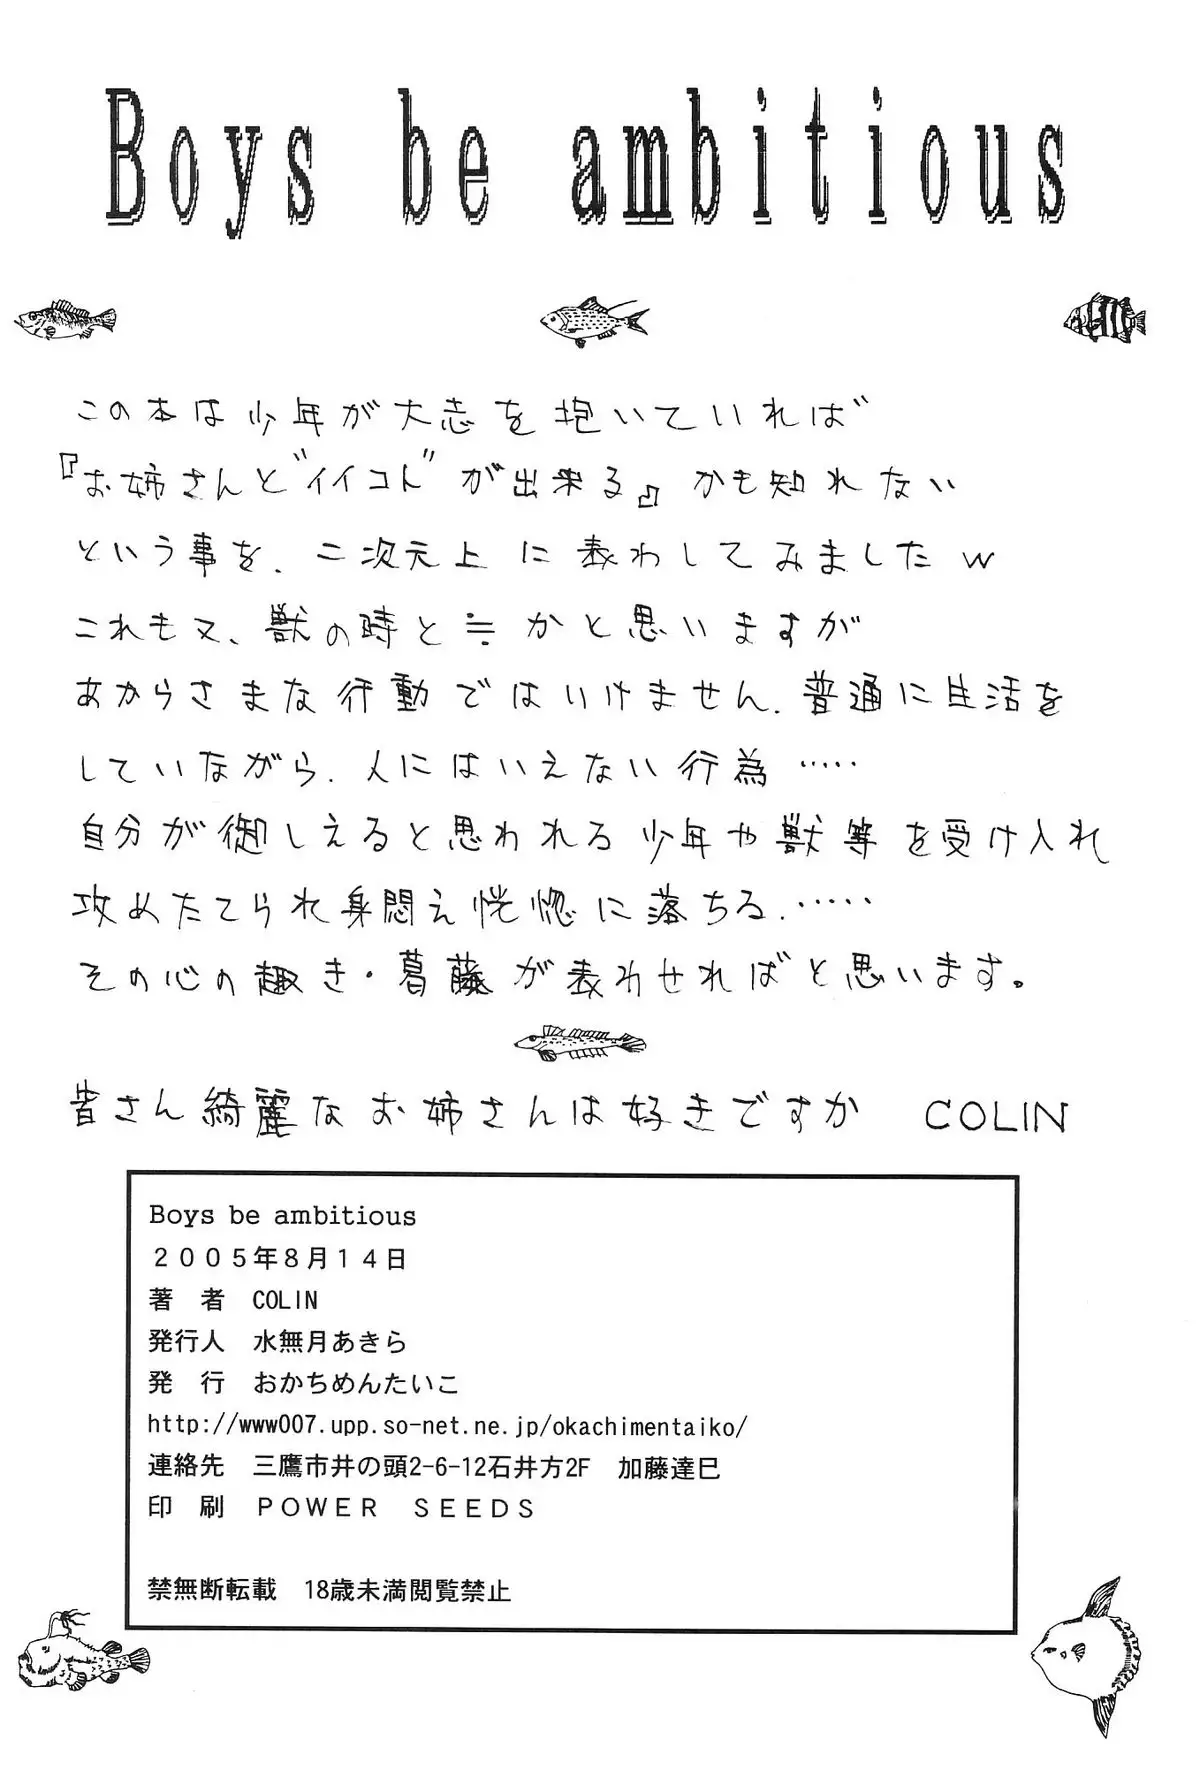 Boys be ambitious
この本は少年が大志を抱いていれば
『お姉さんと"イイコト"が出来る』かも知れない
という事を、二次元上に表わしてみましたw
これも又、獣の時と≒かと思いますが
あからさまな行動ではいけません。普通に生活を
していながら、人にはいえない行為……
自分が御しえると思われる少年や獣等を受け入れ
攻めたてられ身悶え恍惚に落ちる……
その心の趣き・葛藤が表わせればと思います。
皆さん綺麗なお姉さんは好きですか COLIN
Boys be ambitious
２００５年８月１４日
著　者　COLIN
発行人　水無月あきら
発　行　おかちめんたいこ
http://www007.upp.so-net.ne.jp/okachimentaiko/
連絡先　三鷹市井の頭2-6-12石井方2F　加藤達巳
印　刷　ＰＯＷＥＲ　ＳＥＥＤＳ
禁無断転載　18歳未満閲覧禁止